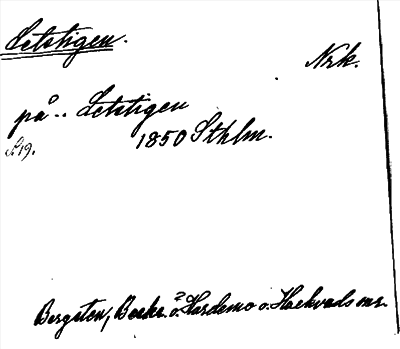 Letstigen.
Nrk.
på .. Letstigen
1850 Sthlm.
S. 19.
Bergsten, Beskr. ö. Hardemo o. Hackvads snr.